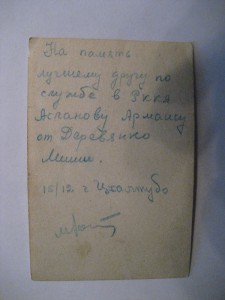 На память
лучшему другу по
службе в РККА
Аспанову Армаису
от Деревянко
Миши.
15/12 г Цхалтубо